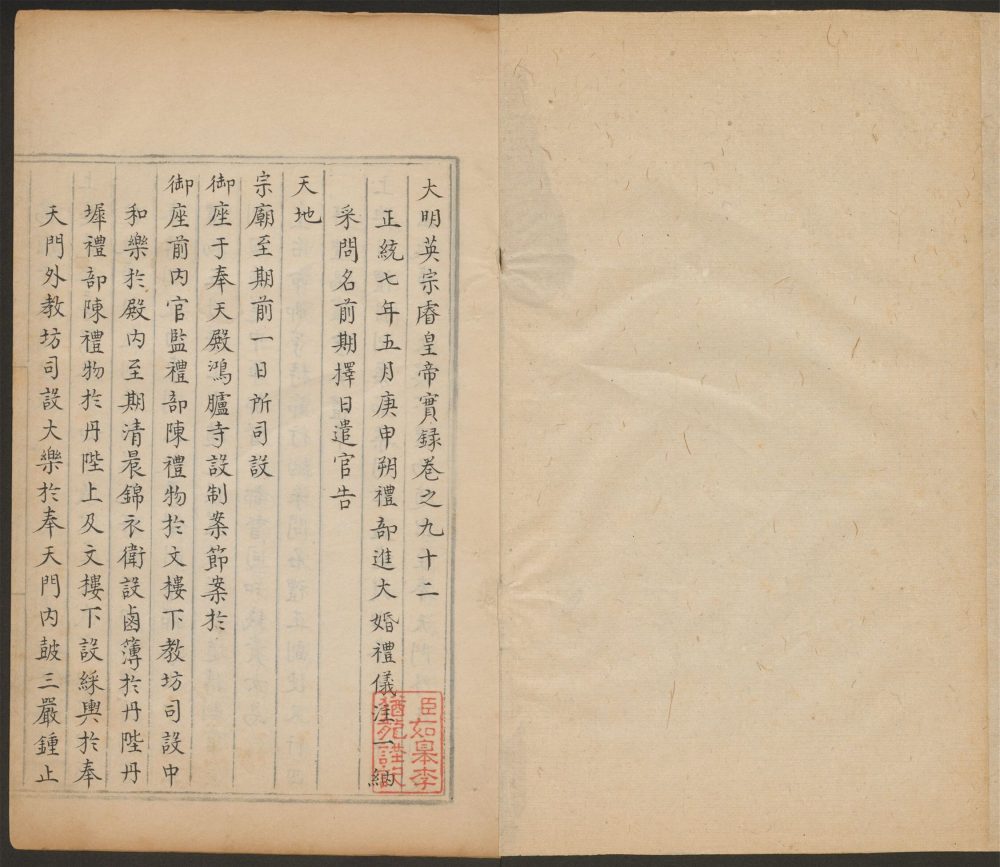 大明英宗睿皇帝實録卷之九十二
正統七年五月庚申朔禮部進大婚禮儀注一納
采問名前期擇日遣官告
天地
宗廟至期前一日所司設
御座于奉天殿鴻臚寺設制案節案於
御座前内官監禮部陳禮物於文樓下教坊司設中
和樂於殿内至期清晨錦衣衛設鹵簿於丹陛丹
墀禮部陳禮物於丹陛上及文樓下設綵輿於奉
天門外教坊司設大樂於奉天門内皷三嚴鍾止
臣如皋李